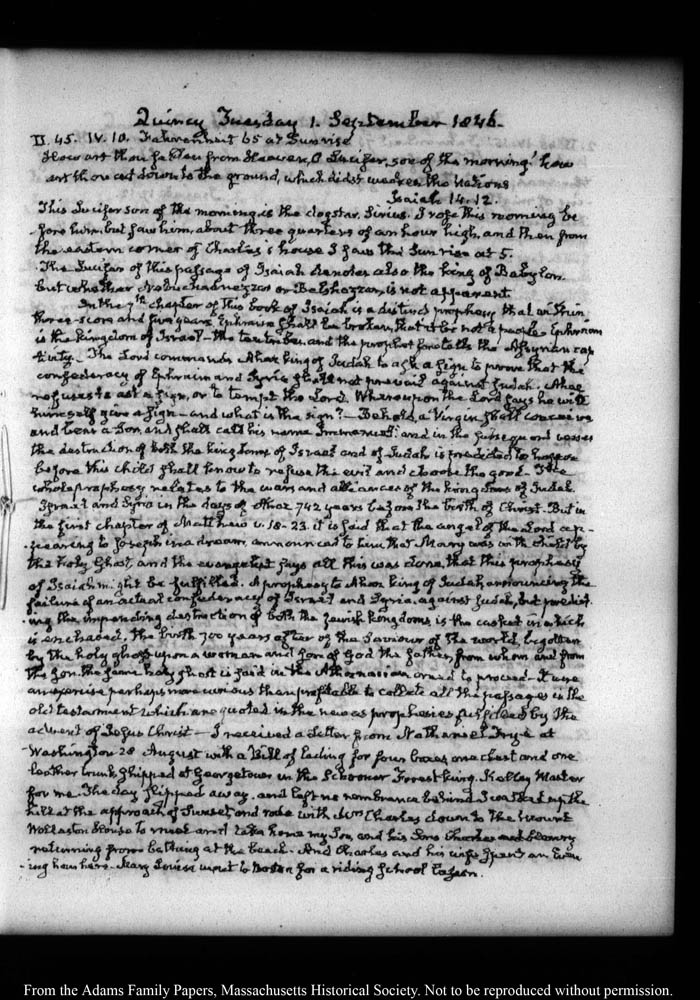 Quincy Tuesday 1. September 1846.
II. 45. IV. 10. Fahrenheit 65 at Sunrise
How art thou fallen from Heaven, O Lucifer, son of the morning! how
art thou cut down to the ground, which didst weaken the Nations
Isaiah 14. 12.
This Lucifer son of the morning is the dogstar, Sirius. I rose this morning be
fore him, but saw him, about three quarters of an hour high, and then from
the eastern corner of Charles's house I saw the Sun rise at 5.
The Lucifer of this passage of Isaiah denotes also the king of Babylon.
but whether Nebuchadnezzar or Belshazzar, is not apparent
In the 7th chapter of this book of Isaiah is a distinct prophecy that within
three-score and five years, Ephraim shall be broken, that it be not a people Ephraim
is the kingdom of Israel - the ten tribes, and the prophet foretells the Assyrian cap
tivity. The Lord commands Ahaz king of Judah to ask a sign to prove that the
confederacy of Ephraim and Syria shall not prevail against Judah. Ahaz
refuses to ask a sign, or to tempt the Lord. Whereupon the Lord says he will
himself give a sign - and what is the sign? - Behold, a Virgin shall conceive
and bear a Son, and shall call his name Immanuel: and in the subsequent verses
the destruction of both the kingdoms of Israel and of Judah is predicted to happen
before this child shall know to refuse the evil and choose the good. The
whole prophesy relates to the wars and alliances of the kingdoms of Judah
Israel and Syria in the days of Ahaz 742 years before the birth of Christ. But in
the first chapter of Matthew v. 18-23. it is said that the angel of the Lord ap-
pearing to Joseph in a dream, announced to him that Mary was with child by
the holy Ghost, and the evangelist says all this was done, that this prophesy
of Isaiah might be fulfilled. A prophesy to Ahaz king of Judah, announcing the
failure of an actual confederacy of Israel and Syria, against Judah, but predict
ing the impending destruction of both the Jewish kingdoms, is the casket in which
is enchased, the birth 700 years after of the Saviour of the world, begotten
by the holy ghost upon a woman and Son of God the father, from whom and from
the son, the same holy ghost is said in the Athanasian creed to proceed - It were
an exercise perhaps more curious than profitable to collate all the passages in the
old testament which are quoted in the new as prophesies fulfilled by the
advent of Jesus Christ - I received a Letter from Nathaniel Frye at
Washington 28 August with a Bill of lading for four boxes one chest and one
leather trunk shipped at Georgetown in the Schooner Forrest king. Kelley Master
for me. The day slipped away and left no remembrance behind I walked up the
hill at the approach of Sunset, and rode with Mrs Charles down to the Mount
Wollaston House to meet and take home my Son, and his Sons Charles and Henry
returning from bathing at the beach - And Charles and his wife spent an Even
ing hour here. Mary Louisa went to Boston for a riding School lesson.
From the Adams Family Papers, Massachusetts Historical Society. Not to be reproduced without permission.